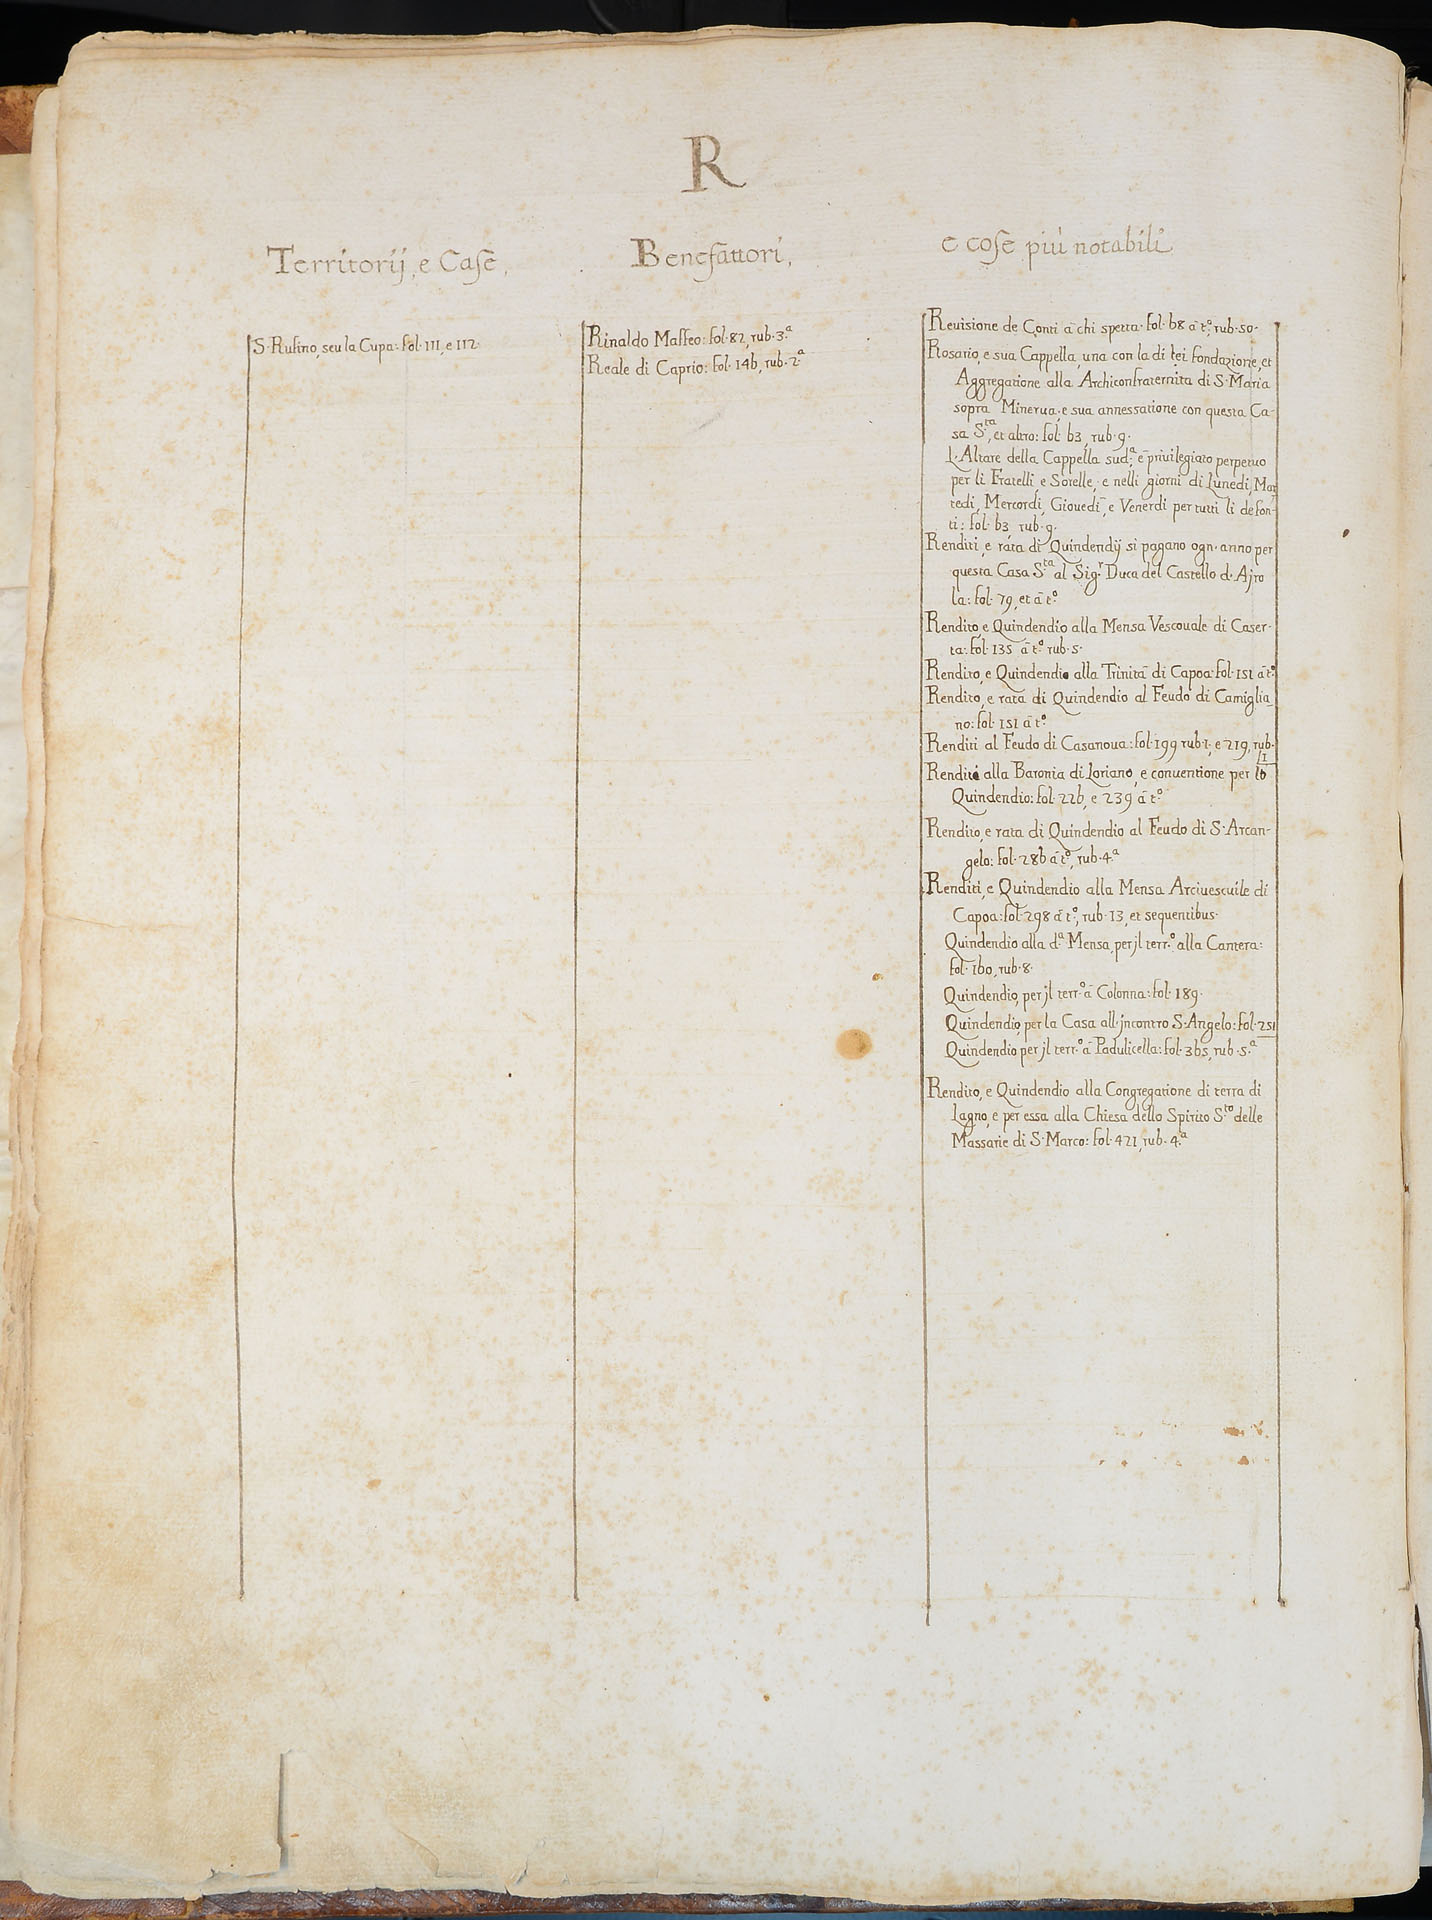 R
Territorij, e Case,
S. Rufino, seu la Cupa: fol. 111, e 112
Benefattori,
Rinaldo Maffeo: fol. 82, rub. 3.ª
Reale di Caprio: fol. 146, rub. 2.ª
e cose più notabili
Reuisione de Conti à chi spetta. fol. 68 à t.º, rub. 50.
Rosario, e sua Cappella, una con la di lei fondazione, et
Aggregatione alla Archiconfraternita di S. Maria
sopra Minerua, e sua annessatione con questa Ca-
sa S.ta, et altro: fol. 63, rub. 9.
L'Altare della Cappella sud.ª è priuilegiato perpetuo
per li Fratelli e Sorelle, e nelli giorni di Lunedi, Mar
tedi, Mercordi, Giouedi, e Venerdi per tutti li defon-
ti: fol. 63, rub. 9.
Renditi, e rata di Quindendij si pagano ogn. anno per
questa Casa S.ta al Sig.r Duca del Castello d. Ajro
la: fol. 79, et à t.º
Rendito, e Quindendio alla Mensa Vescouale di Caser-
ta: fol. 135 à t.º rub. 5.
Rendito, e Quindendio alla Trinità di Capoa: fol. 151 à t.º
Rendito, e rata di Quindendio al Feudo di Camiglia
no: fol. 151 à t.º
Renditi al Feudo di Casanoua: fol. 199 rub. 1, e 219, rub.
1
Renditi alla Baronia di Loriano, e conuentione per lo
Quindendio: fol. 226, e 239 à t.º
Rendito, e rata di Quindendio al Feudo di S. Arcan-
gelo: fol. 286 à t.º, rub. 4.ª
Renditi, e Quindendio alla Mensa Arciuescuile di
Capoa: fol. 298 à t.º, rub. 13, et sequentibus.
Quindendio alla d.ª Mensa, per jl terr.º alla Cantera:
fol. 160, rub. 8.
Quindendio, per jl terr.º à Colonna: fol. 189.
Quindendio, per la Casa all. jncontro S. Angelo: fol. 251
Quindendio per jl terr.º à Padulicella: fol. 365, rub. 5.ª
Rendito, e Quindendio alla Congregatione di terra di
Lagno, e per essa alla Chiesa dello Spirito S.to delle
Massarie di S. Marco: fol. 421, rub. 4.ª